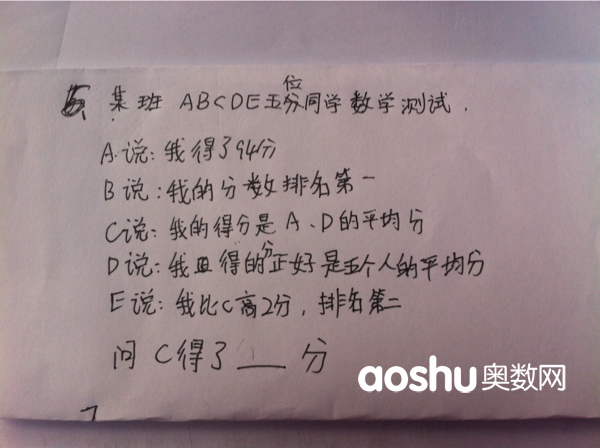 集班 ABCDE五位同学数学测试.
A说:我得了94分
B说:我的分数排名第一
C说:我的得分是A、D的平均分
D说:我得的分正好是五个人的平均分
E说:我比C高2分,排名第二
问 C得了___分
aoshu奥数网